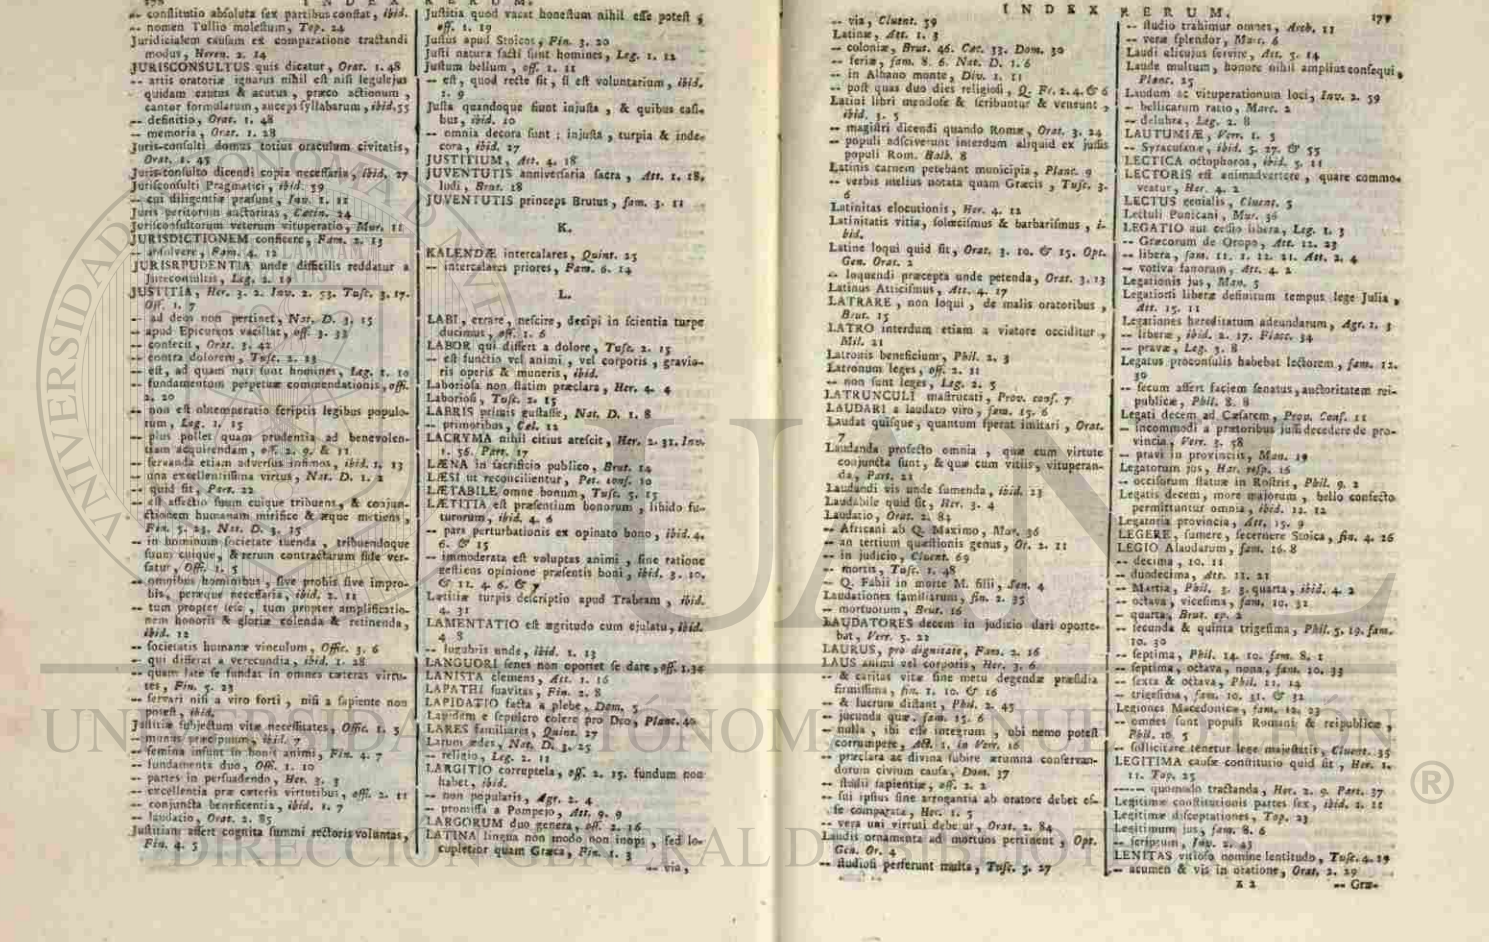 178 INDEX RERUM.
-- constitutio absoluta sex partibus constat, ibid.
-- nomen Tullio molestum, Top. 24
Juridicialem causam ex comparatione tractandi
modus, Heren. 2. 14
JURISCONSULTUS quis dicatur, Orat. 1. 48
-- artis oratoriæ ignarus nihil est nisi legulejus
quidam cautus & acutus, præco actionum,
cantor formularum, auceps syllabarum, ibid. 55
-- definitio, Orat. 1. 48
-- memoria, Orat. 1. 28
Juris-consulti domus totius oraculum civitatis,
Orat. 1. 45
Juris-consulto dicendi copia necessaria, ibid. 27
Jurisconsulti Pragmatici, ibid. 59
-- cui diligentiæ præsunt, Inv. 1. 11
Juris peritorum auctoritas, Cæcin. 24
Jurisconsultorum veterum vituperatio, Mur. 11
JURISDICTIONEM conficere, Fam. 2. 13
-- absolvere, Fam. 4. 12
JURISRPUDENTIA unde difficilis reddatur a
Jureconsultis, Leg. 2. 19
JUSTITIA, Her. 3. 2. Inv. 2. 53. Tusc. 3. 17.
Off. 1. 7
-- ad deos non pertinet, Nat. D. 3. 15
-- apud Epicureos vacillat, off. 3. 32
-- contecti, Orat. 3. 42
-- contra dolorem, Tusc. 2. 13
-- est, ad quam nati sunt homines, Leg. 1. 10
-- fundamentom perpetuæ commendationis, offi.
2. 20
-- non est obtemperatio scriptis legibus populo-
rum, Leg. 1. 15
-- plus pollet quam prudentia ad benevolen-
tiam acquirendam, off. 2. 9. & 11
-- servanda etiam adversus infimos, ibid. 1. 13
-- una excellentissima virtus, Nat. D. 1. 2
-- quid sit, Part. 22
-- est affectio suum cuique tribuens, & conjun-
ctionem humanam mirifice & æque metiens,
Fin. 5. 23. Nat. D. 3. 15
-- in hominum societate tuenda, tribuendoque
suum cuique, & rerum contractarum fide ver-
satur, Offi. 1. 5
-- omnibus hominibus, sive probis sive impro-
bis, peræque necessaria, ibid. 2. 11
-- tum propter sese, tum propter amplificatio-
nem honoris & gloriæ colenda & retinenda,
ibid. 12
-- societatis humanæ vinculum, Offic. 3. 6
-- qui differat a verecundia, ibid. 1. 28
-- quam late se fundat in omnes cæteras virtu-
tes, Fin. 5. 23
-- servari nisi a viro forti, nisi a sapiente non
potest, ibid.
Justitiæ subjectum vitæ necessitates, Offic. 1. 5
-- munus præcipuum, ibid. 7
-- semina insunt in bonis animi, Fin. 4. 7
-- fundamenta duo, Offi. 1. 10
-- partes in persuadendo, Her. 3. 3
-- excellentia præ cæteris virtutibus, offi. 2. 11
-- conjuncta beneficentia, ibid. 1. 7
-- laudatio, Orat. 2. 85
Justitiam assert cognita summi rectoris voluntas,
Fin. 4. 5
Justitia quod vacat honestum nihil esse potest,
off. 1. 19
Justus apud Stoicos, Fin. 3. 20
Justi natura facti sunt homines, Leg. 1. 12
Justum bellum, off. 1. 11
-- est, quod recte fit, si est voluntarium, ibid.
1. 9
Justa quandoque fiunt injusta, & quibus casi-
bus, ibid. 10
-- omnia decora sunt; injusta, turpia & inde-
cora, ibid. 27
JUSTITIUM, Att. 4. 18
JUVENTUTIS anniversaria sacra, Att. 1. 18.
ludi, Brut. 18
JUVENTUTIS princeps Brutus, fam. 3. 11
K.
KALENDÆ intercalares, Quint. 25
-- intercalares priores, Fam. 6. 14
L.
LABI, errare, nescire, decipi in scientia turpe
ducimus, off. 1. 6
LABOR qui differt a dolore, Tusc. 2. 15
-- est functio vel animi, vel corporis, gravio-
ris operis & muneris, ibid.
Laboriosa non statim præclara, Her. 4. 4
Laboriosi, Tusc. 2. 15
LABRIS primis gustasse, Nat. D. 1. 8
-- primoribus, Cæl. 12
LACRYMA nihil citius arescit, Her. 2. 31. Inv.
1. 56. Part. 17
LÆNA in sacrificio publico, Brut. 14
LÆSI ut reconcilientur, Pet. conf. 10
LÆTABILE omne bonum, Tusc. 5. 15
LÆTITIA est præsentium bonorum, libido fu-
turorum, ibid. 4. 6
-- pars perturbationis ex opinato bono, ibid. 4.
6. & 15
-- immoderata est voluptas animi, sine ratione
gestiens opinione præsentis boni, ibid. 3. 10.
& 11. 4. 6. & 7
Lætitiæ turpis descriptio apud Trabeam, ibid.
4. 31
LAMENTATIO est ægritudo cum ejulatu, ibid.
4 8
-- lugubris unde, ibid. 1. 13
LANGUORI senes non oportet se dare, off. 1. 34
LANISTA clemens, Att. 1. 16
LAPATHI suavitas, Fin. 2. 8
LAPIDATIO facta a plebe, Dom. 5
Lapidem e sepulcro colere pro Deo, Planc. 40
LARES familiares, Quint. 27
Larum ædes, Nat. D. 3. 25
-- religio, Leg. 2. 11
LARGITIO corruptela, off. 2. 15. fundum non
habet, ibid.
-- non popularis, Agr. 2. 4
-- promissa a Pompejo, Att. 9. 9
LARGORUM duo genera, off. 2. 16
LATINA lingua non modo non inops, sed lo-
cupletior quam Græca, Fin. 1. 3
-- via,
INDEX RERUM. 179
-- via, Cluent. 59
Latinæ, Att. 1. 3
-- coloniæ, Brut. 46. Cæc. 33. Dom. 30
-- feriæ, fam. 8. 6. Nat. D. 1. 6
-- in Albano monte, Div. 1. 11
-- post quas duo dies religiosi, Q. Fr. 2. 4. & 6
Latini libri mendose & scribuntur & veneunt,
ibid. 3. 5
-- magistri dicendi quando Romæ, Orat. 3. 24
-- populi adsciverunt interdum aliquid ex jussis
populi Rom. Balb. 8
Latinis carnem petebant municipia, Planc. 9
-- verbis melius notata quam Græcis, Tusc. 3.
6
Latinitas elocutionis, Her. 4. 12
Latinitatis vitia, solœcismus & barbarismus, i-
bid.
Latine loqui quid sit, Orat. 3. 10. & 15. Opt.
Gen. Orat. 2
-- loquendi præcepta unde petenda, Orat. 3. 13
Latinus Atticismus, Att. 4. 17
LATRARE, non loqui, de malis oratoribus,
Brut. 15
LATRO interdum etiam a viatore occiditur,
Mil. 21
Latronis beneficium, Phil. 2. 3
Latronum leges, off. 2. 11
-- non sunt leges, Leg. 2. 5
LATRUNCULI mastrucati, Prov. conf. 7
LAUDARI a laudato viro, fam. 15. 6
Laudat quisque, quantum sperat imitari, Orat.
7
Laudanda profecto omnia, quæ cum virtute
conjuncta sunt, & quæ cum vitiis, vituperan-
da, Part. 21
Laudandi vis unde sumenda, ibid. 23
Laudabile quid sit, Her. 3. 4
Laudatio, Orat. 2. 84
-- Africani ab Q. Maximo, Mur. 36
-- an tertium quæstionis genus, Or. 2. 11
-- in judicio, Cluent. 69
-- mortis, Tusc. 1. 48
-- Q. Fabii in morte M. filii, Sen. 4
Laudationes familiarum, fin. 2. 35
-- mortuorum, Brut. 16
LAUDATORES decem in judicio dari oporte-
bat, Verr. 5. 22
LAURUS, pro dignitate, Fam. 2. 16
LAUS animi vel corporis, Her. 3. 6
-- & caritas vitæ sine metu degendæ præsidia
firmissima, fin. 1. 10. & 16
-- & lucrum distant, Phil. 2. 45
-- jucunda quæ, fam. 15. 6
-- nulla, ibi esse integrum, ubi nemo potest
corrumpere, Act. 1. in Verr. 16
-- præclara ac divina subire ærumna conservan-
dorum civium causa, Dom. 37
-- studii sapientiæ, off. 2. 2
-- sui ipsius sine arrogantia ab oratore debet es-
se comparata, Her. 1. 5
-- vera uni virtuti debetur, Orat. 2. 84
Laudis ornamenta ad mortuos pertinent, Opt.
Gen. Or. 4
-- studiosi perferunt multa, Tusc. 5. 27
-- studio trahimur omnes, Arch. 11
-- veræ splendor, Marc. 6
Laudi alicujus servire, Att. 5. 14
Laude multum, honore nihil amplius consequi,
Planc. 25
Laudum ac vituperationum loci, Inv. 2. 59
-- bellicarum ratio, Marc. 2
-- delubra, Leg. 2. 8
LAUTUMIÆ, Verr. 1. 5
-- Syracusanæ, ibid. 5. 27. & 55
LECTICA octophoros, ibid. 5. 11
LECTORIS est animadvertere, quare commo-
veatur, Her. 4. 2
LECTUS genialis, Cluent. 5
Lectuli Punicani, Mur. 36
LEGATIO aut cessio libera, Leg. 1. 3
-- Græcorum de Oropo, Att. 12. 23
-- libera, fam. 11. 1. 12. 21. Att. 2. 4
-- votiva fanorum, Att. 4. 2
Legationis jus, Man. 5
Legationi liberæ definitum tempus lege Julia,
Att. 15. 11
Legationes hereditatum adeundarum, Agr. 1. 3
-- liberæ, ibid. 2. 17. Flacc. 34
-- pravæ, Leg. 3. 8
Legatus proconsulis habebat lectorem, fam. 12.
30
-- secum affert faciem senatus, auctoritatem rei-
publicæ, Phil. 8. 8
Legati decem ad Cæsarem, Prov. Conf. 11
-- incommodi a prætoribus jussi decedere de pro-
vincia, Verr. 3. 58
-- pravi in provinciis, Man. 19
Legatorum jus, Har. resp. 16
-- occisorum statuæ in Rostris, Phil. 9. 2
Legatis decem, more majorum, bello confecto
permittuntur omnia, ibid. 12. 12
Legatoria provincia, Att. 15. 9
LEGERE, sumere, secernere Stoica, fin. 4. 26
LEGIO Alaudarum, fam. 16. 8
-- decima, 10. 11
-- duodecima, Att. 11. 21
-- Martia, Phil. 3. 3. quarta, ibid. 4. 2
-- octava, vicesima, fam. 10. 32
-- quarta, Brut. ep. 2
-- secunda & quinta trigesima, Phil. 5. 19. fam.
10. 30
-- septima, Phil. 14. 10. fam. 8. 1
-- septima, octava, nona, fam. 10. 33
-- sexta & octava, Phil. 11. 14
-- trigesima, fam. 10. 31. & 32
Legiones Macedonicæ, fam. 12. 23
-- omnes sunt populi Romani & reipublicæ,
Phil. 10. 5
-- sollicitare tenetur lege majestatis, Cluent. 35
LEGITIMA causæ constitutio quid sit, Her. 1.
11. Top. 25
------ quomodo tractanda, Her. 2. 9. Part. 37
Legitimæ constitutionis partes sex, ibid. 1. 11
Legitimæ disceptationes, Top. 23
Legitimum jus, fam. 8. 6
-- scriptum, Inv. 2. 43
LENITAS vitioso nomine lentitudo, Tusc. 4. 19
-- acumen & vis in oratione, Orat. 2. 29
Z 2 -- Græ-
UANL
UNIVERSIDAD AUTÓNOMA DE NUEVO LEÓN
®
DIRECCIÓN GENERAL DE BIBLIOTECAS